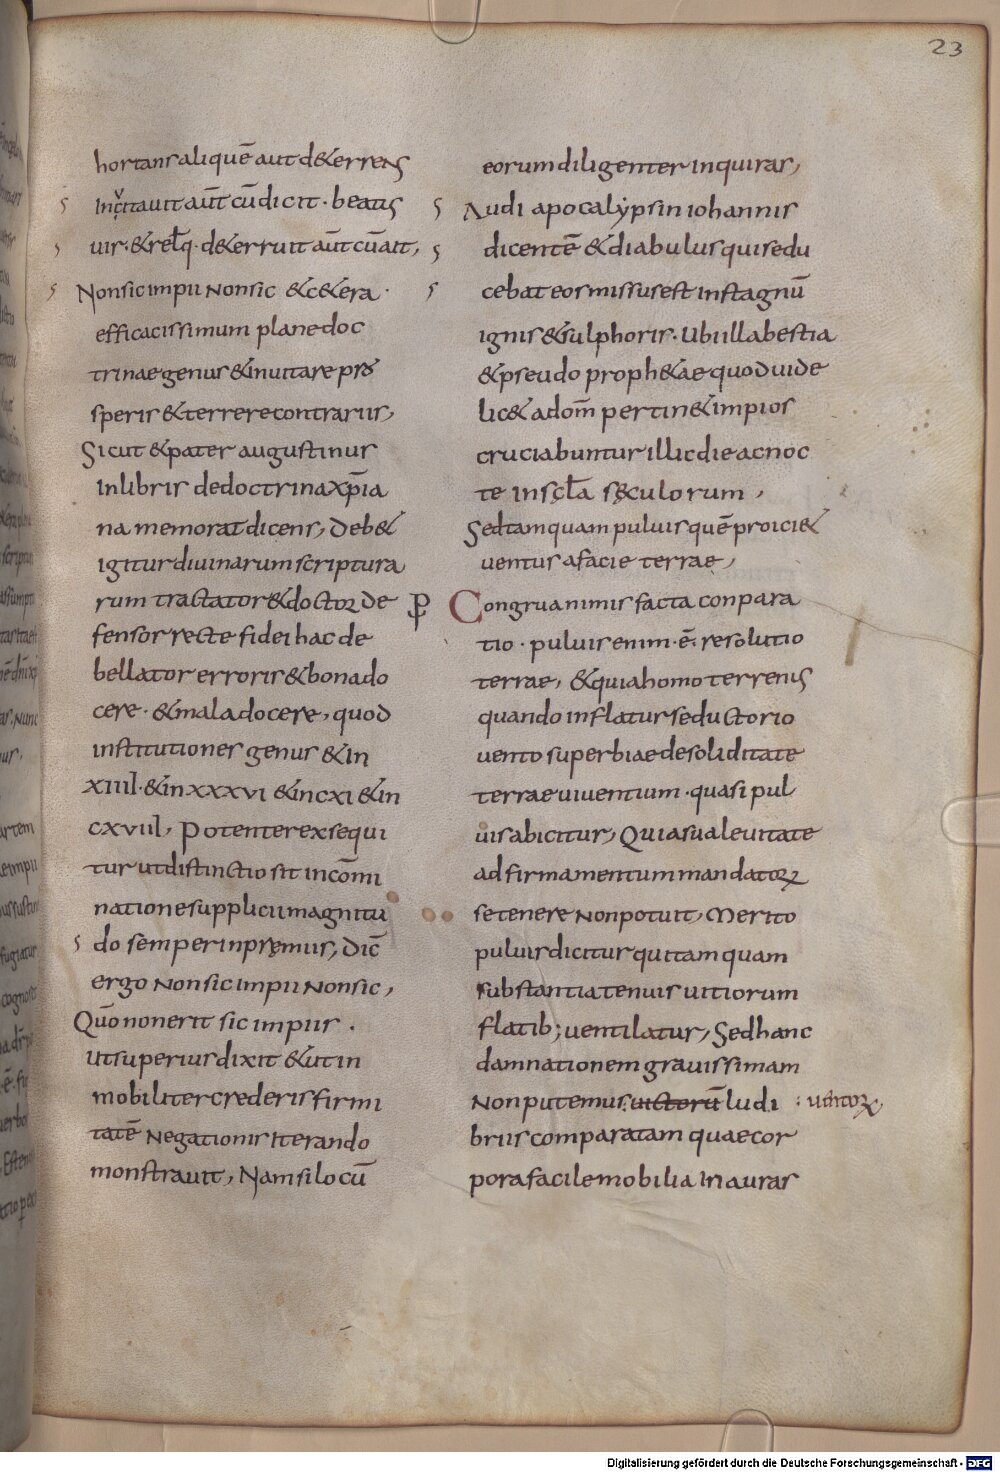 23
hortans aliquē aut d&errens
Inçitauit aūt cū dicit · beatus
uir · & rel̄q · d&erruit aūt cū ait,
Non sic impii Non sic &c&era ·
efficacissimum plane doc
trinae genus & inuitare pro
speris & terrere contrariis,
Sicut & pater augustinus
In libris de doctrina xp̄ia
na memorat dicens, Deb&
igitur diuinarum scriptura
rum tractator & doctor de
fensor recte fidei hac de
bellator erroris & bona do
cere · & mala docere, quod
institutiones genus & in
xiiil · & in xxxvi & in cxi & in
cxviil, Potenter exsequi
tur ut distinctio sit in com̄i
natione supplicii magnitu
do semper in pręmiis, Dic̄
ergo Non sic impii Non sic,
Quō non erit sic impiis .
ut superius dixit & ut in
mobiliter crederis firmi
tatē Negationis Iterando
monstrauit, Nam si locū
eorum diligenter inquiras,
Audi apocalẏpsin iohannis
dicentē & diabulus qui sedu
cebat eos missus est in stagnū
ignis & sulphoris · Ubi illa bestia
& pseudo proph&ae quod uide
lic& ad om̄ pertin& impios
cruciabuntur illic die ac noc
te in sęc̄la sęculorum ,
Sed tamquam puluis quē proici&
uentus a facie terrae,
Congrua nimis facta conpara
tio · puluis enim · ē · resolutio
terrae, & quia homo terrenus
quando inflatur seductorio
uento superbiae de soliditate
terrae uiuentium · quasi pul
uis abicitur, Quia sua leuitate
ad firmamentum mandatoꝝ
se tenere Non potuit, Merito
puluis dicitur qui tam quam
substantia tenuis uitiorum
flatib; uentilatur, Sed hanc
damnationem grauissimam
Non putemus uictorū ludi : uentoꝝ
briis comparatam quae cor
pora facile mobilia In auras
Digitalisierung gefördert durch die Deutsche Forschungsgemeinschaft - DFG